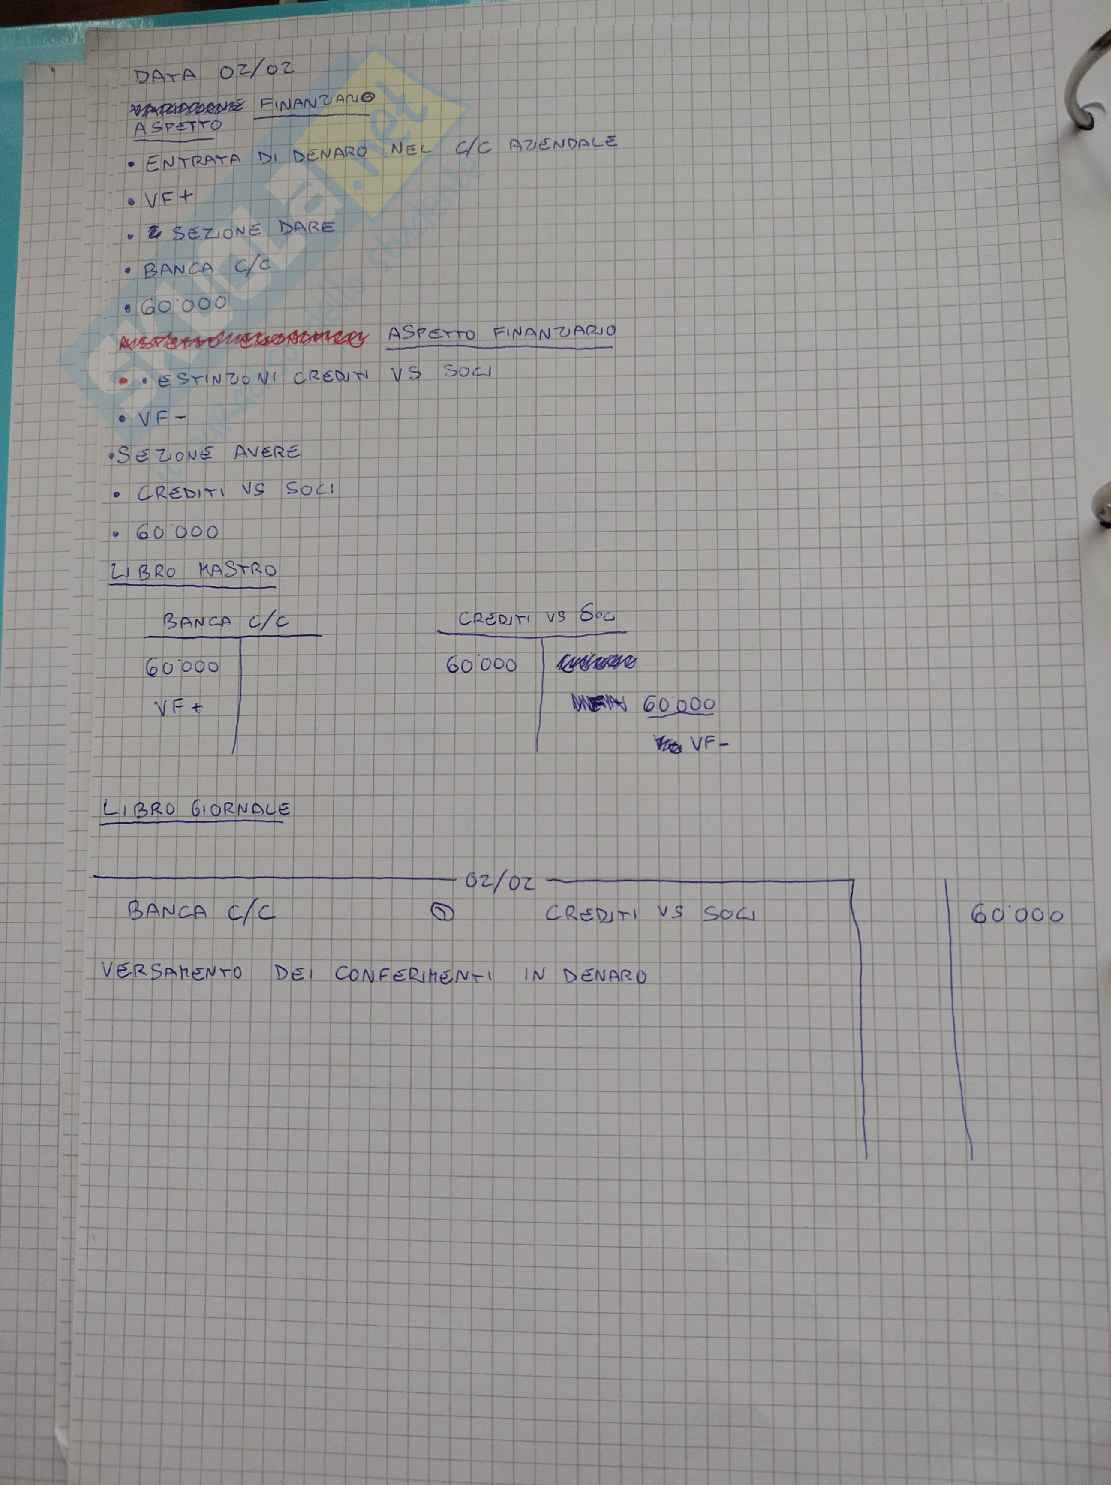 DATA 02/02
FINANZIARIO
ASPETTO
• ENTRATA DI DENARO NEL C/C AZIENDALE
• VF+
• SEZIONE DARE
• BANCA C/C
• 60'000
ASPETTO FINANZIARIO
• • ESTINZIONI CREDITI VS SOCI
• VF-
• SEZIONE AVERE
• CREDITI VS SOCI
• 60'000
LIBRO MASTRO
BANCA C/C CREDITI VS SOCI
60'000 60'000
VF+ 60'000
VF-
LIBRO GIORNALE
02/02
BANCA C/C CREDITI VS SOCI 60'000
VERSAMENTO DEI CONFERIMENTI IN DENARO
SKUOLA.net